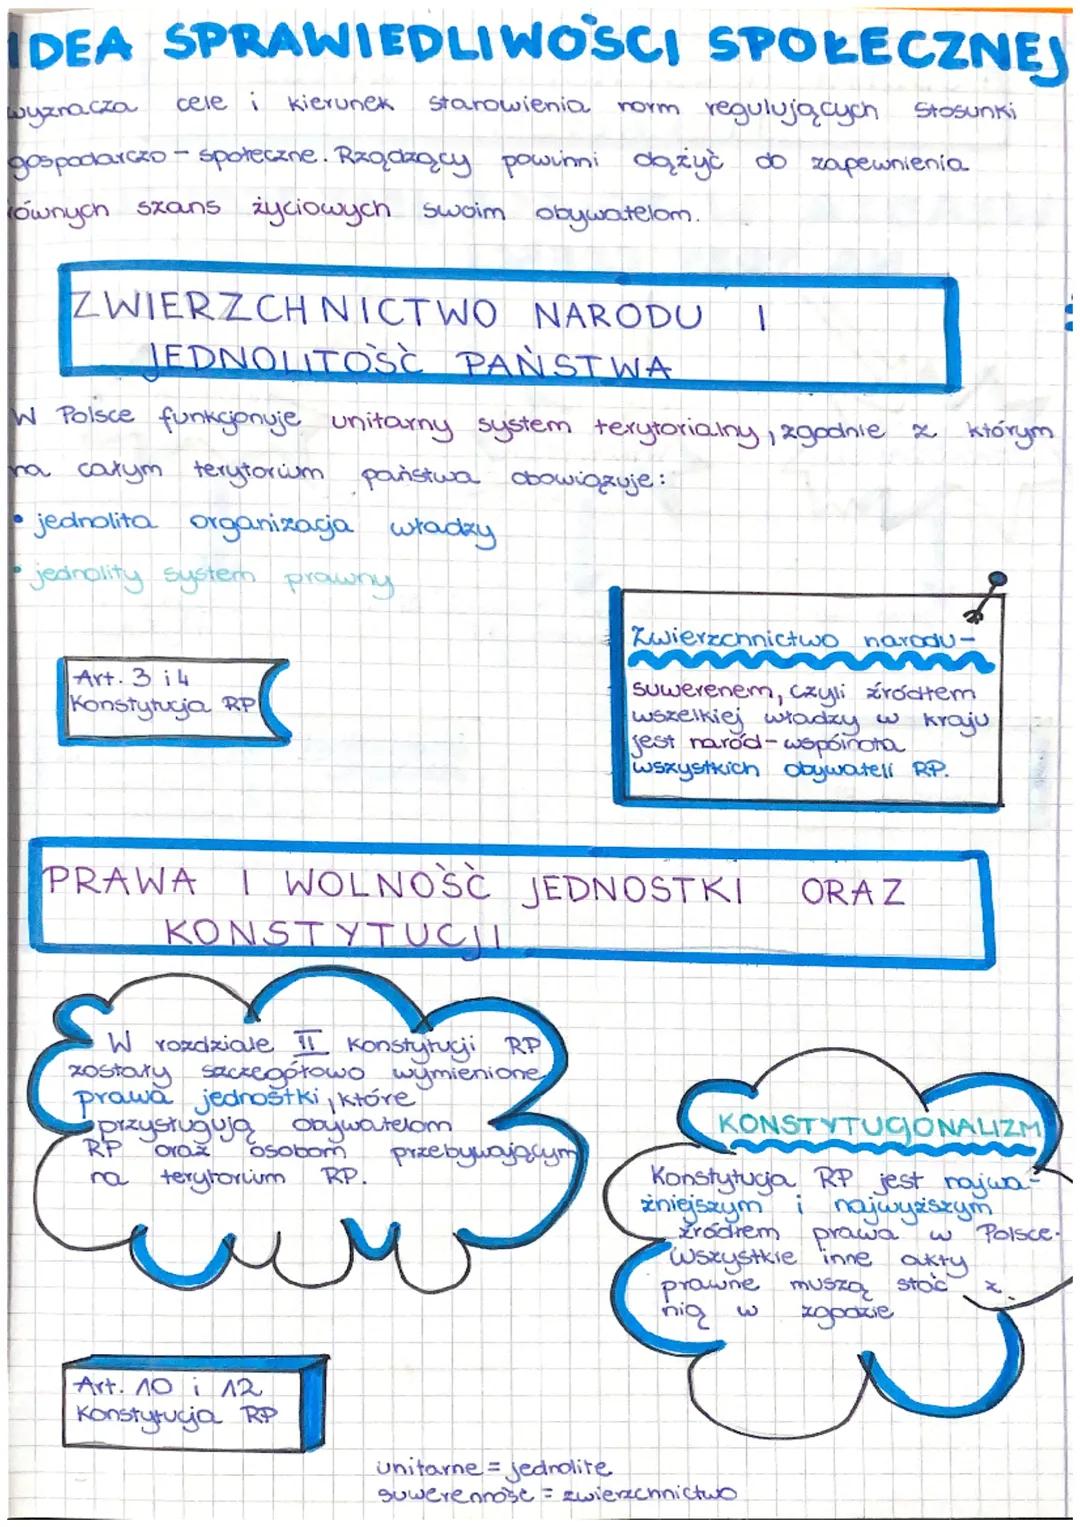 IDEA SPRAWIEDLIWOŚCI SPOŁECZNEJ
wyznacza cele i kierunek stanowienia norm regulujących stosunki
gospodarczo - społeczne. Rządzący powinni dążyć do zapewnienia
równych szans życiowych swoim obywatelom.
ZWIERZCHNICTWO NARODU I
JEDNOLITOŚĆ PAŃSTWA
W Polsce funkcjonuje unitarny system terytorialny, zgodnie z którym
na całym terytorium państwa obowiązuje:
• jednolita organizacja władzy
• jednolity system prawny
Zwierzchnictwo narodu -
suwerenem, czyli źródłem
wszelkiej władzy w kraju
jest naród - wspólnota
wszystkich obywateli RP.
Art. 3 i 4
Konstytucja RP
PRAWA I WOLNOŚĆ JEDNOSTKI ORAZ
KONSTYTUCJI
W rozdziale II Konstytucji RP
zostały szczegółowo wymienione
prawa jednostki, które
przysługują obywatelom
RP oraz osobom przebywającym
na terytorium RP.
KONSTYTUCJONALIZM
Konstytucja RP jest najwa-
żniejszym i najwyższym
źródłem prawa w Polsce.
Wszystkie inne akty
prawne muszą stać z
nią w zgodzie
Art. 10 i 12
Konstytucja RP
unitarne = jednolite
suwerenność = zwierzchnictwo